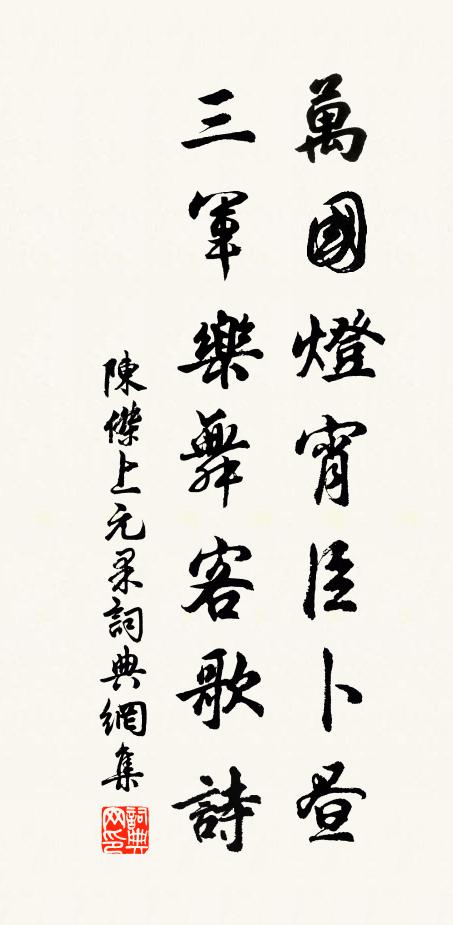 萬國燈宵臣卜晝
三軍樂舞客歌詩
陳傑上元采詞典網集
詞典网印